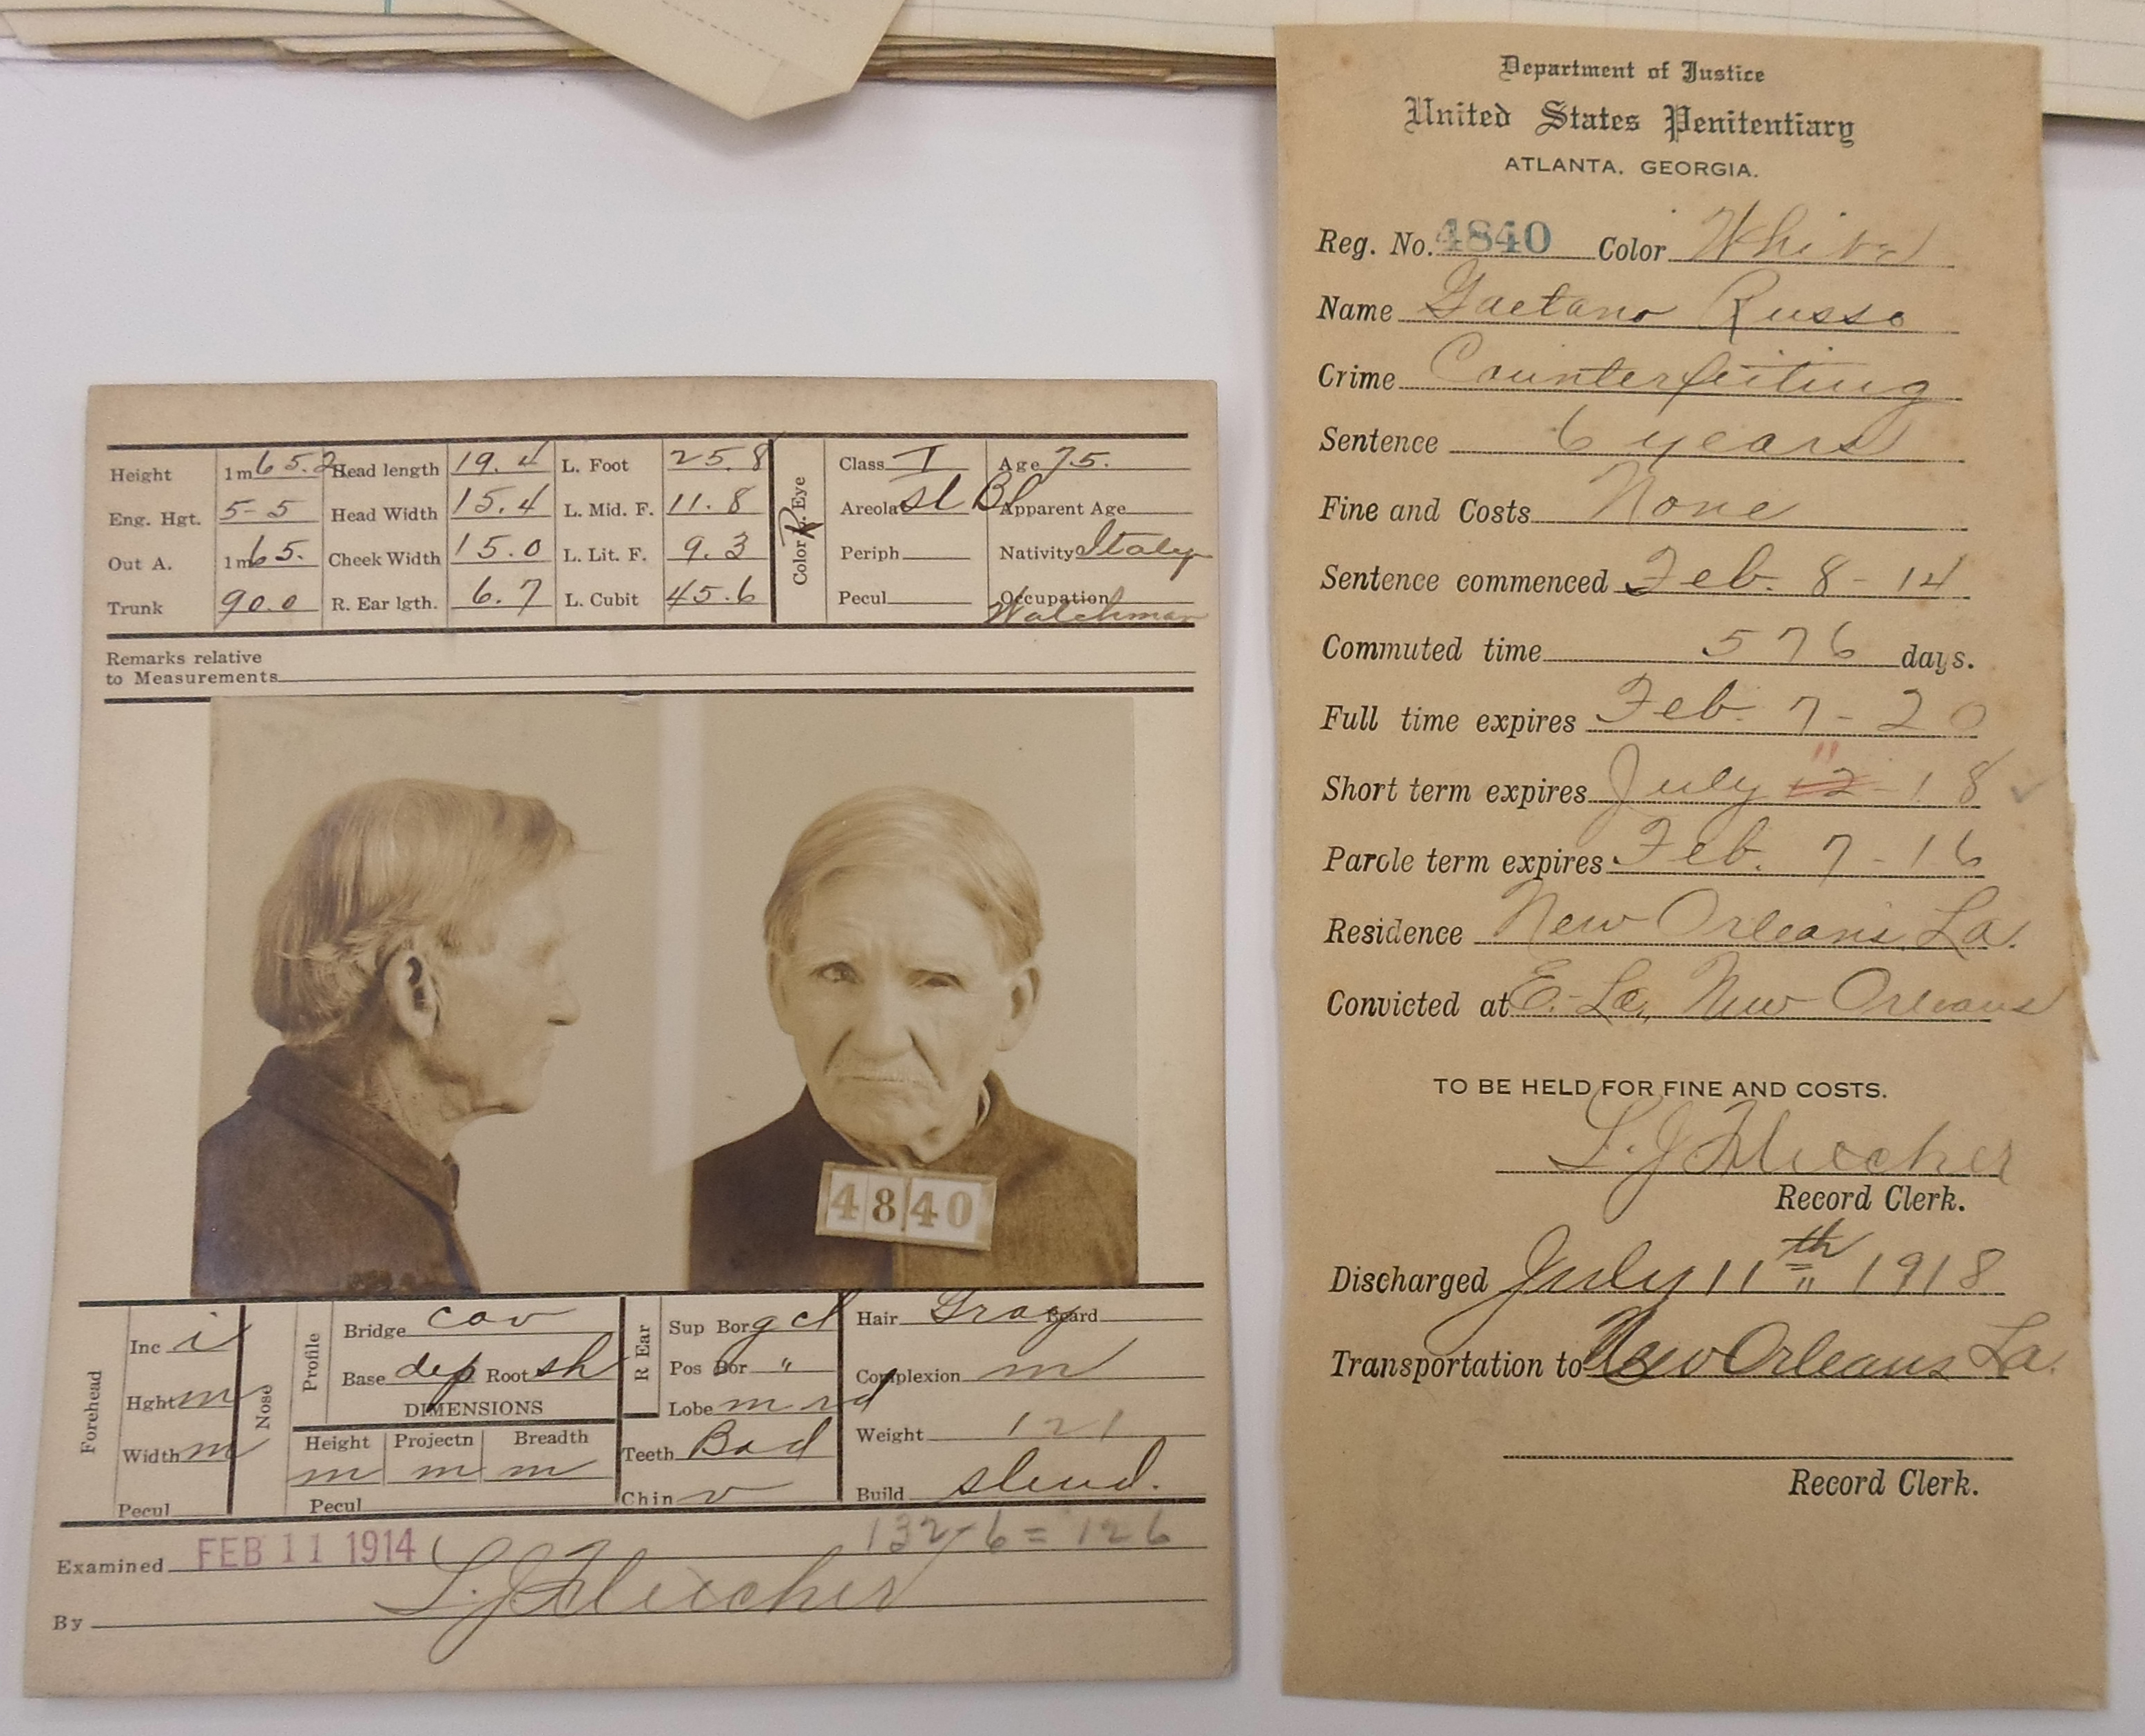 Height 1m 65.2 Head length 19.4 L. Foot 25.8 Class I Age 75.
Eng. Hgt. 5-5 Head Width 15.4 L. Mid. F. 11.8 Areola sl Bl Apparent Age
Out A. 1m 65. Cheek Width 15.0 L. Lit. F. 9.3 Periph Nativity Italy
Trunk 90.0 R. Ear lgth. 6.7 L. Cubit 45.6 Pecul Occupation
Watchman
Color R. Eye
Remarks relative
to Measurements
4840
Forehead
Inc i
Hght m
Width m
Pecul
Nose
Profile
Bridge cav
Base dep Root sh
DIMENSIONS
Height Projectn Breadth
m m m
Pecul
R Ear
Sup Bor g cl
Pos Bor "
Lobe m rd
Teeth Bad
Chin v
Hair Gray Beard
Complexion m
Weight 121
Build slend.
132-6=126
Examined FEB 11 1914
By L. J. Fletcher
Department of Justice
United States Penitentiary
ATLANTA, GEORGIA.
Reg. No. 4840 Color White
Name Gaetano Russo
Crime Counterfeiting
Sentence 6 years
Fine and Costs None
Sentence commenced Feb. 8-14
Commuted time 576 days.
Full time expires Feb. 7-20
11
Short term expires July 12-18
Parole term expires Feb. 7-16
Residence New Orleans, La.
Convicted at E. La., New Orleans
TO BE HELD FOR FINE AND COSTS.
L. J. Fletcher
Record Clerk.
Discharged July 11th 1918
Transportation to New Orleans La.
Record Clerk.